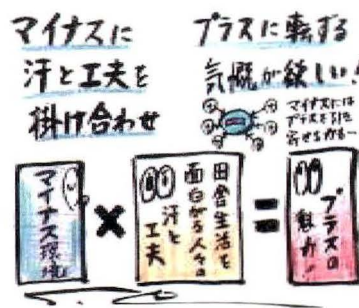 マイナスに
汗と工夫を
掛け合わせ
プラスに転ずる
気慨が欲しい!
マイナスには
プラスを引き
寄せる力が一
マイナス環境
×
田舎生活を
面白がる人々の
汗と
工夫
=
プラスの
魅力!